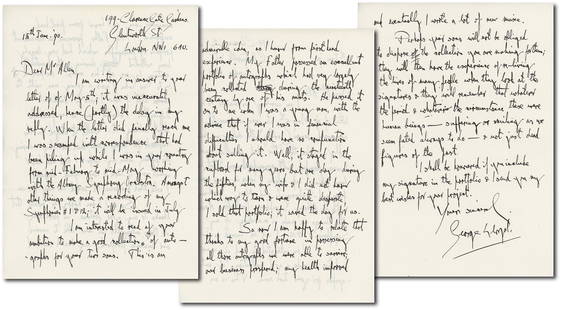 199. Clarence Gate Gardens.
18th June. 90. Glentworth St.
London NW1 6AU.
Dear Mr Allen,
I am writing in answer to your
letter of May 5th, it was incorrectly
addressed, hence (partly) the delay in my
reply. When the letter did finally reach me
I was swamped with correspondence that had
been piling up while I was in your country
from mid. February to mid. May working
with the Albany Symphony Orchestra. Amongst
other things we made a recording of my
Symphonies #1 & 12; it will be issued in July.
I am interested to read of your
ambition to make a good collection, of auto-
graphs for your two sons. This is an
admirable idea, as I know from first hand
experience. My Father possessed an excellent
portfolio of autographs which had very largely
been collected during the nineteenth
century by one of his aunts. He passed it
on to me when I was a young man, with the
advice that if ever I was in financial
difficulties I should have no compunction
about selling it. Well, it stayed in the
cupboard for many years but one day during
the fifties when my wife & I did not know
which way to turn & were quite desperate,
I sold that portfolio; it saved the day for us.
So now I am happy to relate that
thanks to my good fortune in possessing
all those autographs we were able to survive,
our business prospered; my health improved
and eventually I wrote a lot of new music.
Perhaps your sons will not be obliged
to dispose of the collection you are making for them,
they will then have the experience of reliving
the lives of many people when they look at the
signatures & they will remember that whatever
the period & whatever the circumstance these were
human beings — suffering or smiling as we
seem fated always to do — & not just dead
figures of the past.
I shall be honoured if you include
my signature in the portfolio & I send you my
best wishes for your project.
Yours sincerely
George Lloyd.